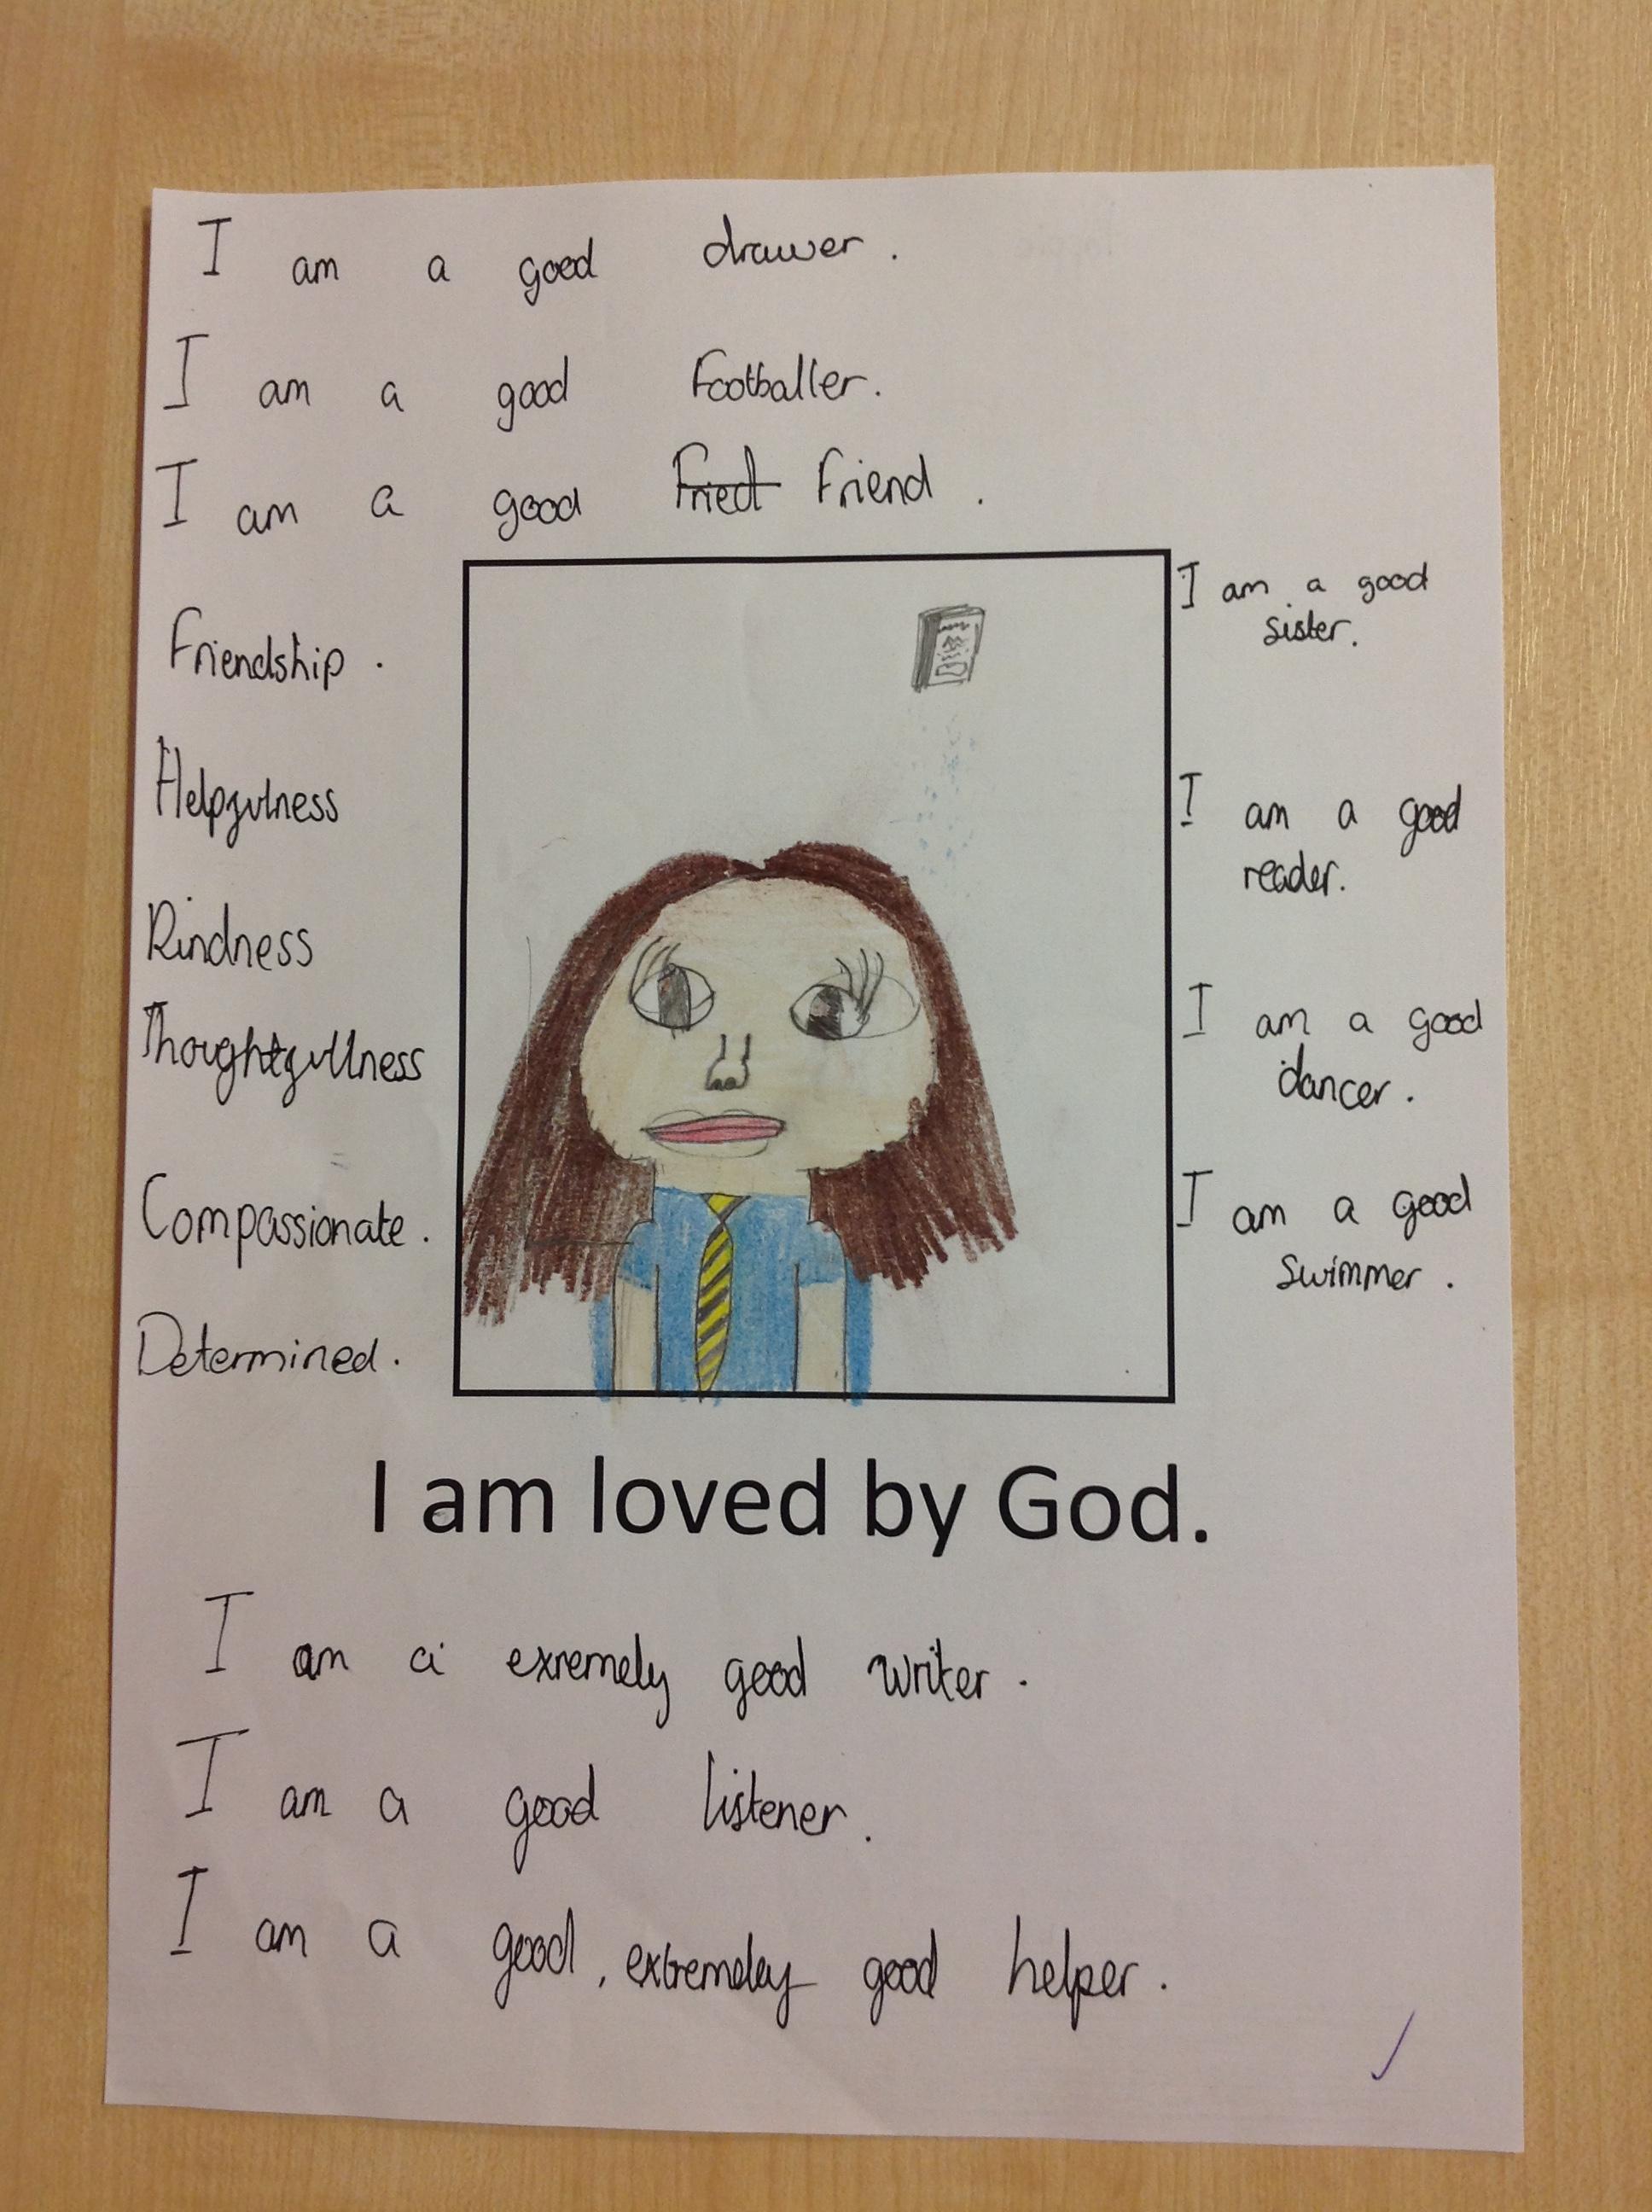 I am a good drawer.
I am a good Footballer.
I am a good Fried Friend.
Friendship.
Helpfulness
Kindness
Thoughtfullness
Compassionate.
Determined.
I am a good
sister.
I am a good
reader.
I am a good
dancer.
I am a good
swimmer.
I am loved by God.
I am a exremely good writer.
I am a good listener.
I am a good, extremeley good helper.